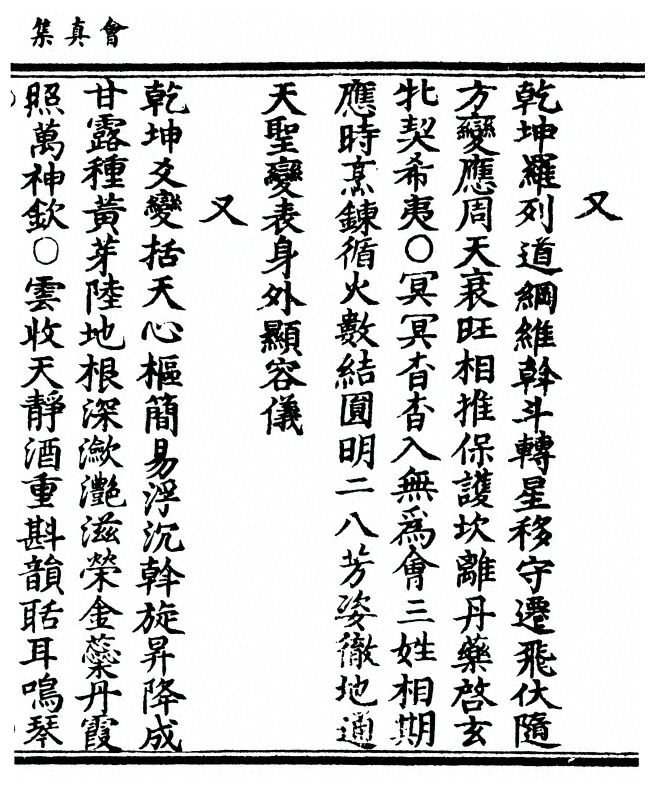 會真集
又
乾坤羅列道綱維斡斗轉星移守遷飛伏隨
方變應周天衰旺相推保護坎離丹藥啓玄
牝契希夷○冥冥杳杳入無爲會三姓相期
應時烹鍊循火數結圓明二八芳姿徹地通
天聖變表身外顯容儀
又
乾坤爻變括天心樞簡易浮沉斡旋昇降成
甘露種黃芽陸地根深瀲灩滋榮金蘂丹霞
照萬神欽○雲收天靜酒重斟韻聒耳鳴琴